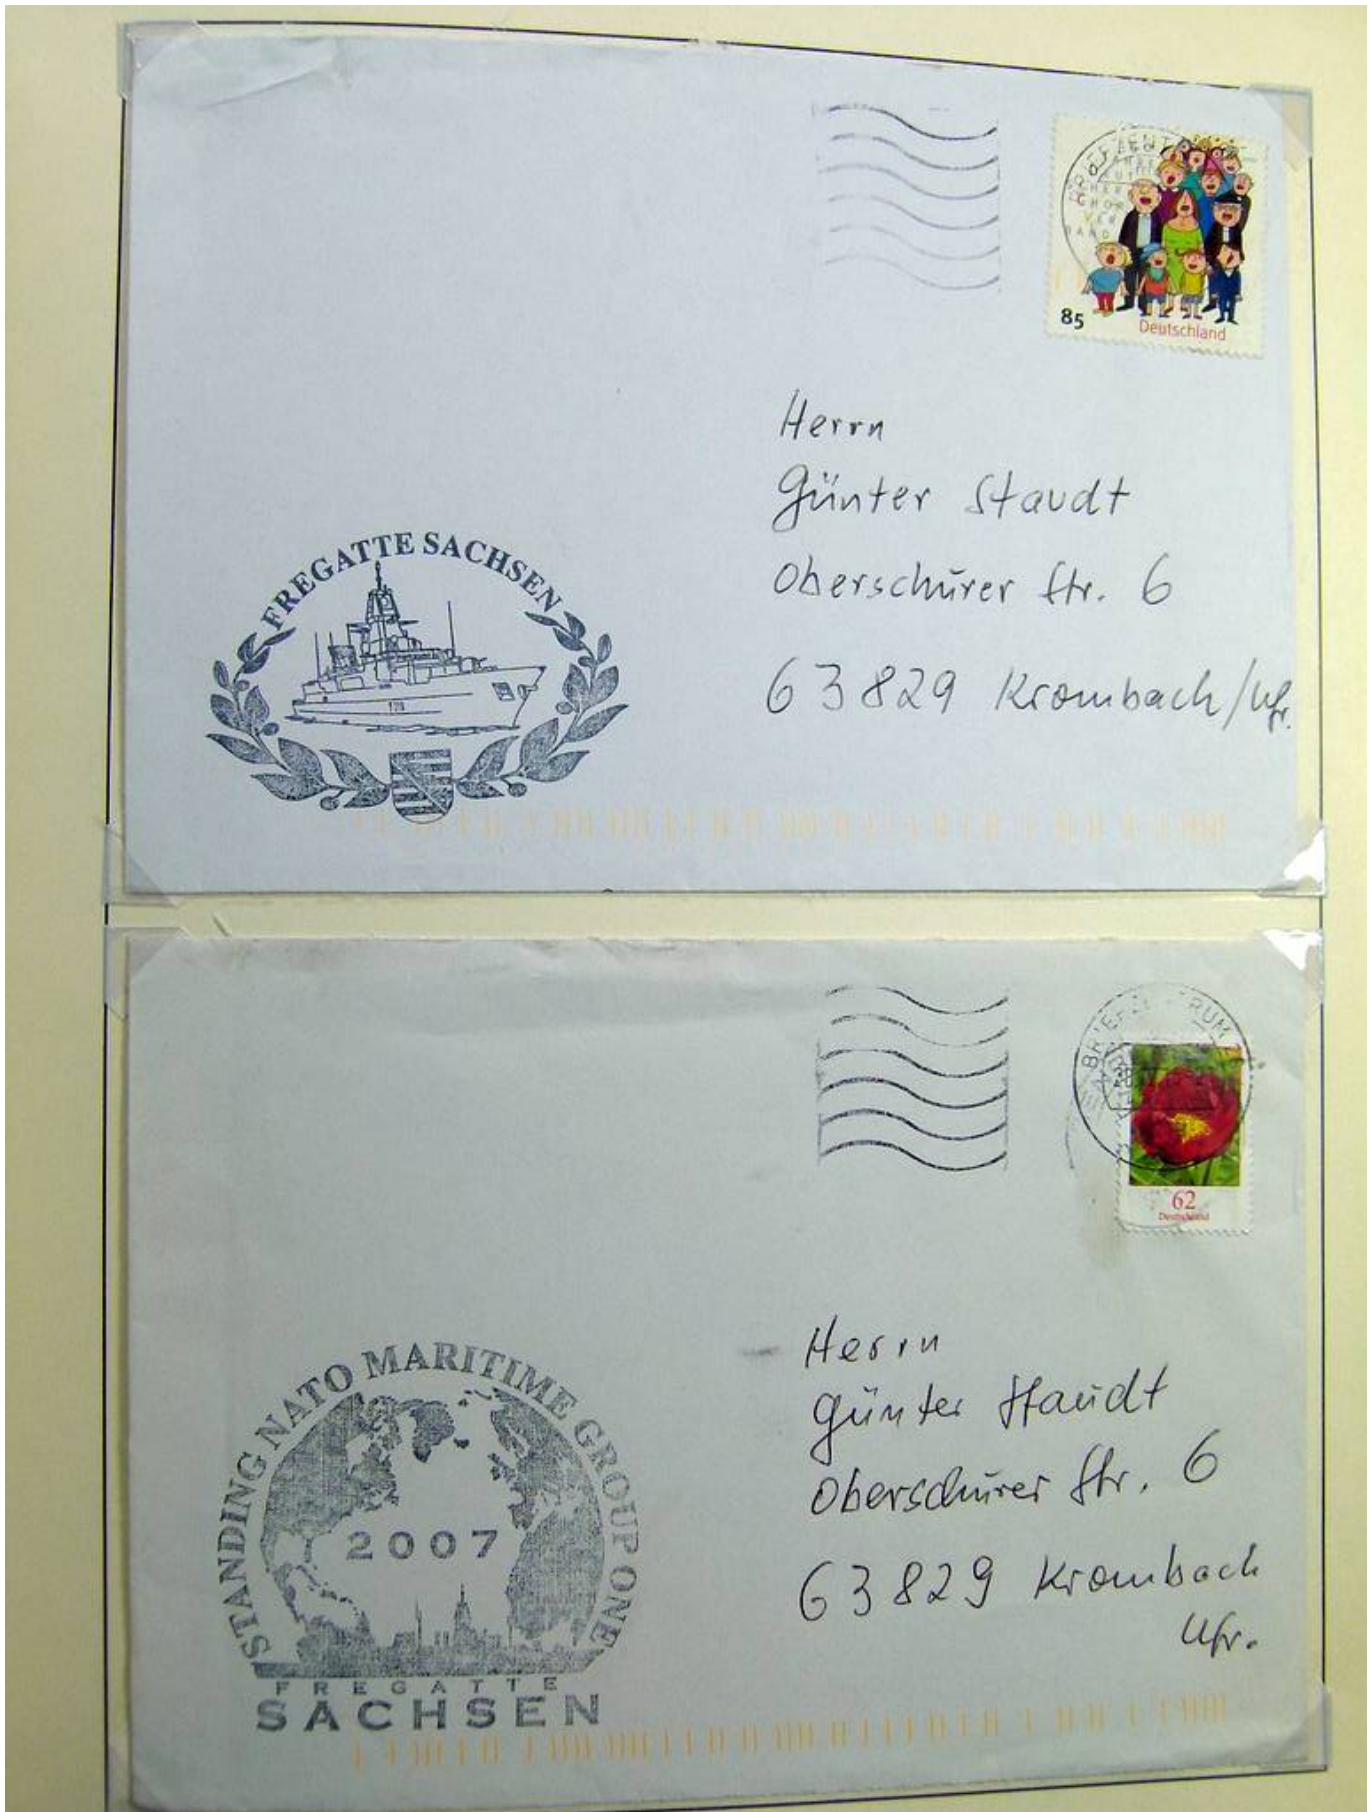 BRIEFZENTRUM
CHOR
VER
BAND
85
Deutschland
Herrn
Günter Staudt
Oberschürer Str. 6
63829 Krombach/Ufr.
FREGATTE SACHSEN
BRIEFZENTRUM
62
Deutschland
Herrn
Günter Staudt
Oberschürer Str. 6
63829 Krombach
Ufr.
STANDING NATO MARITIME GROUP ONE
2007
FREGATTE
SACHSEN